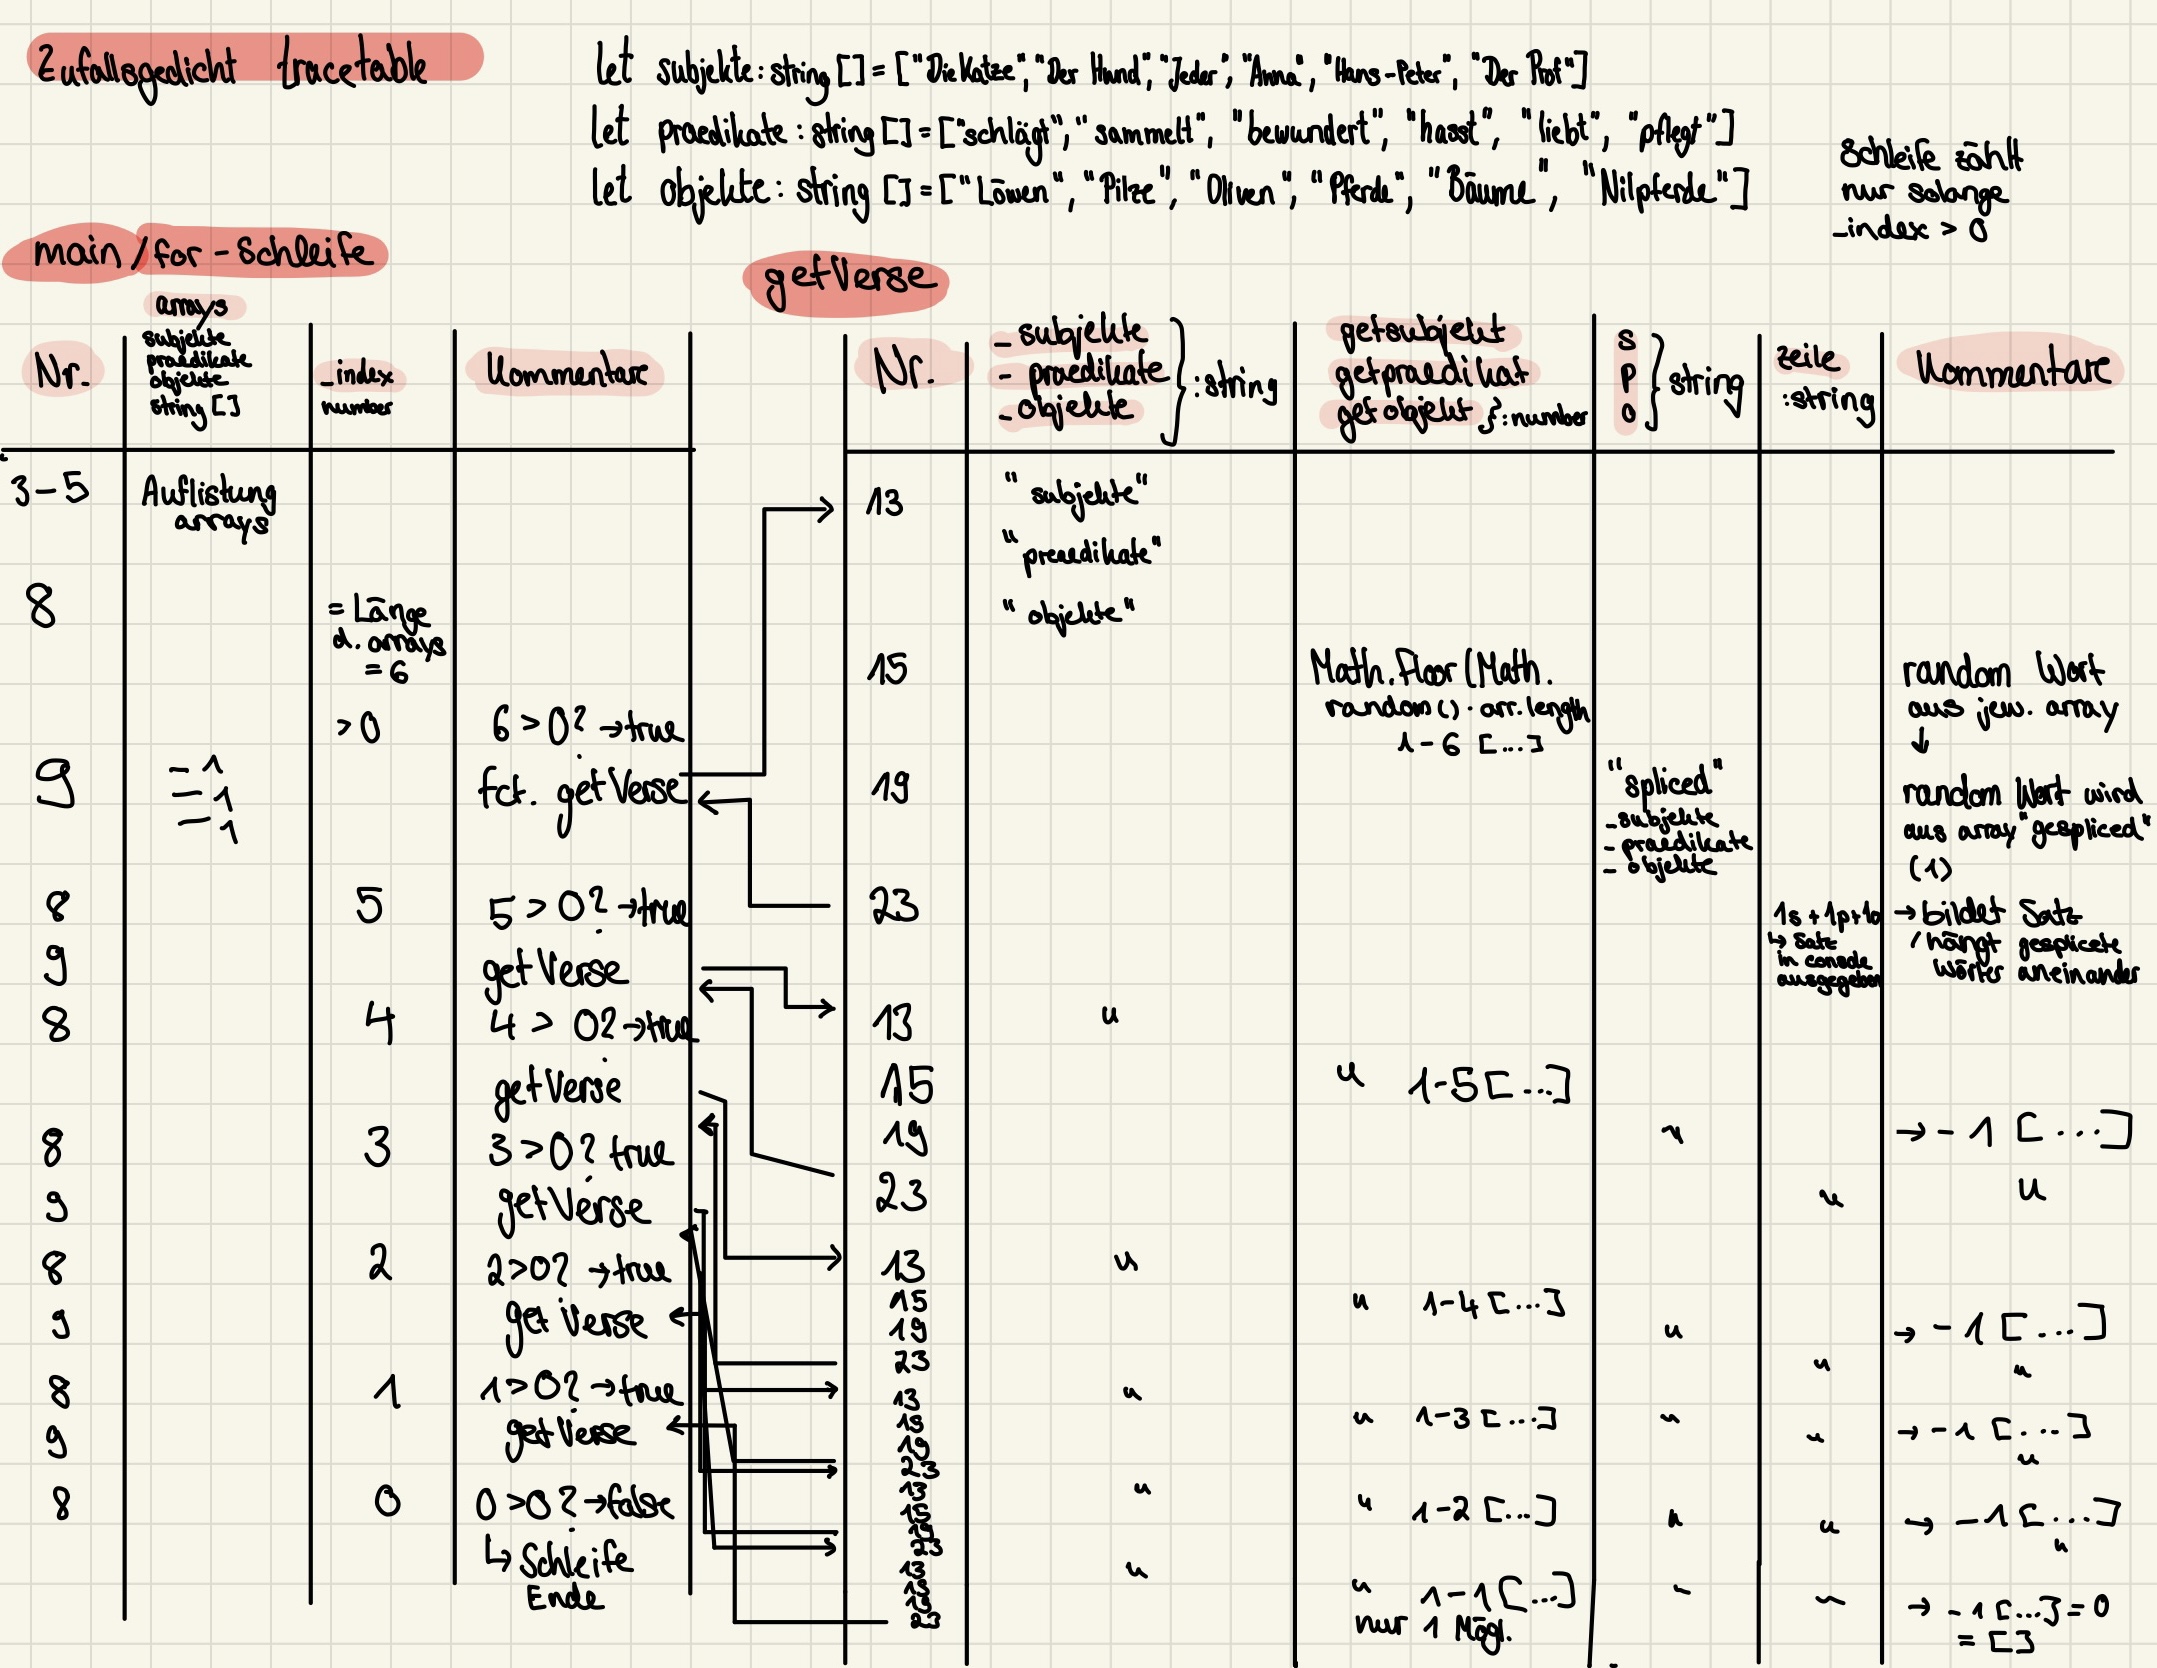 Zufallsgedicht tracetable
let subjekte: string [] = ["Die Katze", "Der Hund", "Jeder", "Anna", "Hans-Peter", "Der Prof"]
let praedikate: string [] = ["schlägt", "sammelt", "bewundert", "hasst", "liebt", "pflegt"]
let objekte: string [] = ["Löwen", "Pilze", "Oliven", "Pferde", "Bäume", "Nilpferde"]
Schleife zählt
nur solange
_index > 0
main / for-Schleife
Nr.
arrays
subjekte
praedikate
objekte
string []
_index
number
Kommentare
3-5
Auflistung
arrays
8
= Länge
d. arrays
= 6
> 0
6 > 0? → true
9
-1
-1
-1
fct. getVerse
8
5
5 > 0? → true
9
getVerse
8
4
4 > 0? → true
getVerse
8
3
3 > 0? true
9
getVerse
8
2
2 > 0? → true
9
getVerse
8
1
1 > 0? → true
9
getVerse
8
0
0 > 0? → false
↳ Schleife
Ende
getVerse
Nr.
_ subjekte
_ praedikate
_ objekte
} : string
getsubjekt
getpraedikat
getobjekt } : number
s
p
o
} string
zeile
: string
Kommentare
13
"subjekte"
"preaedikate"
"objekte"
15
Math.floor(Math.
random() · arr.length
1-6 [...]
random Wort
aus jew. array
↓
19
"spliced"
_ subjekte
_ praedikate
_ objekte
random Wort wird
aus array "gespliced"
(1)
23
1s + 1p + 1o
↳ Satz
in console
ausgegeben
→ bildet Satz
/ hängt gesplicete
Wörter aneinander
13
"
15
" 1-5 [...]
19
"
→ -1 [...]
23
"
"
13
"
15
" 1-4 [...]
19
"
→ -1 [...]
23
"
"
13
"
15
" 1-3 [...]
19
"
"
→ -1 [...]
23
"
13
"
15
" 1-2 [...]
19
"
"
→ -1 [...]
23
"
13
"
15
" 1-1 [...]
nur 1 Mögl.
19
23
→ -1 [...] = 0
= []